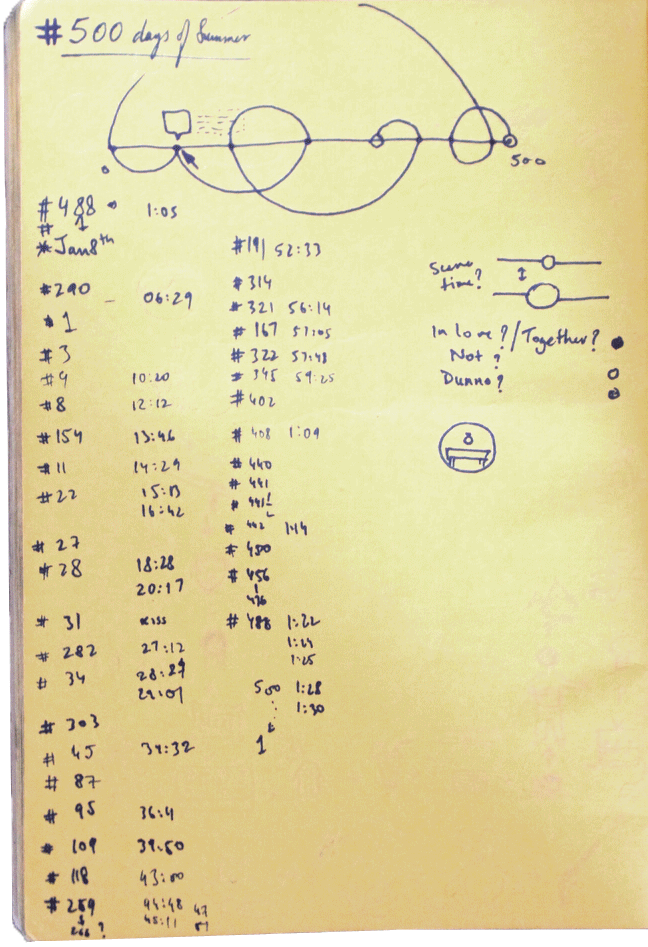 #500 days of Summer
0
500
#488 1:05
#
*Jan 8th
#290 - 06:29
#1
#3
#4 10:20
#8 12:12
#154 13:46
#11 14:29
#22 15:13
16:42
#27
#28 18:28
20:17
#31 kiss
#282 27:12
#34 28:27
29:01
#303
#45 34:32
#87
#95 36:4
#109 39:50
#118 43:00
#259 44:48 47
266? 45:11
#191 52:33
#314
#321 56:14
#167 57:05
#322 57:48
#345 59:25
#402
#408 1:09
#440
#441
#441!
#442 1:14
#450
#456
476
#488 1:22
1:24
1:25
500 1:28
1:30
1
Scene
time?
In love?/Together?
Not?
Dunno?